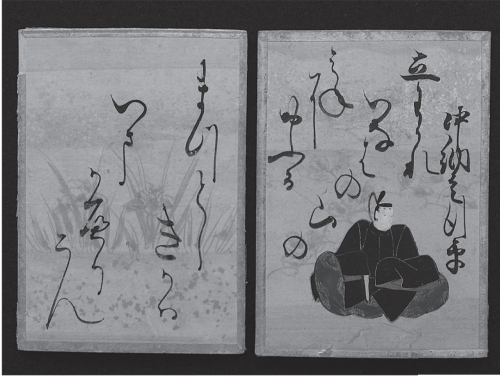 中納言行平
立わかれ
いなは
の山の
みねに
おふる
まつとし
きかは
いま
かへり
こん